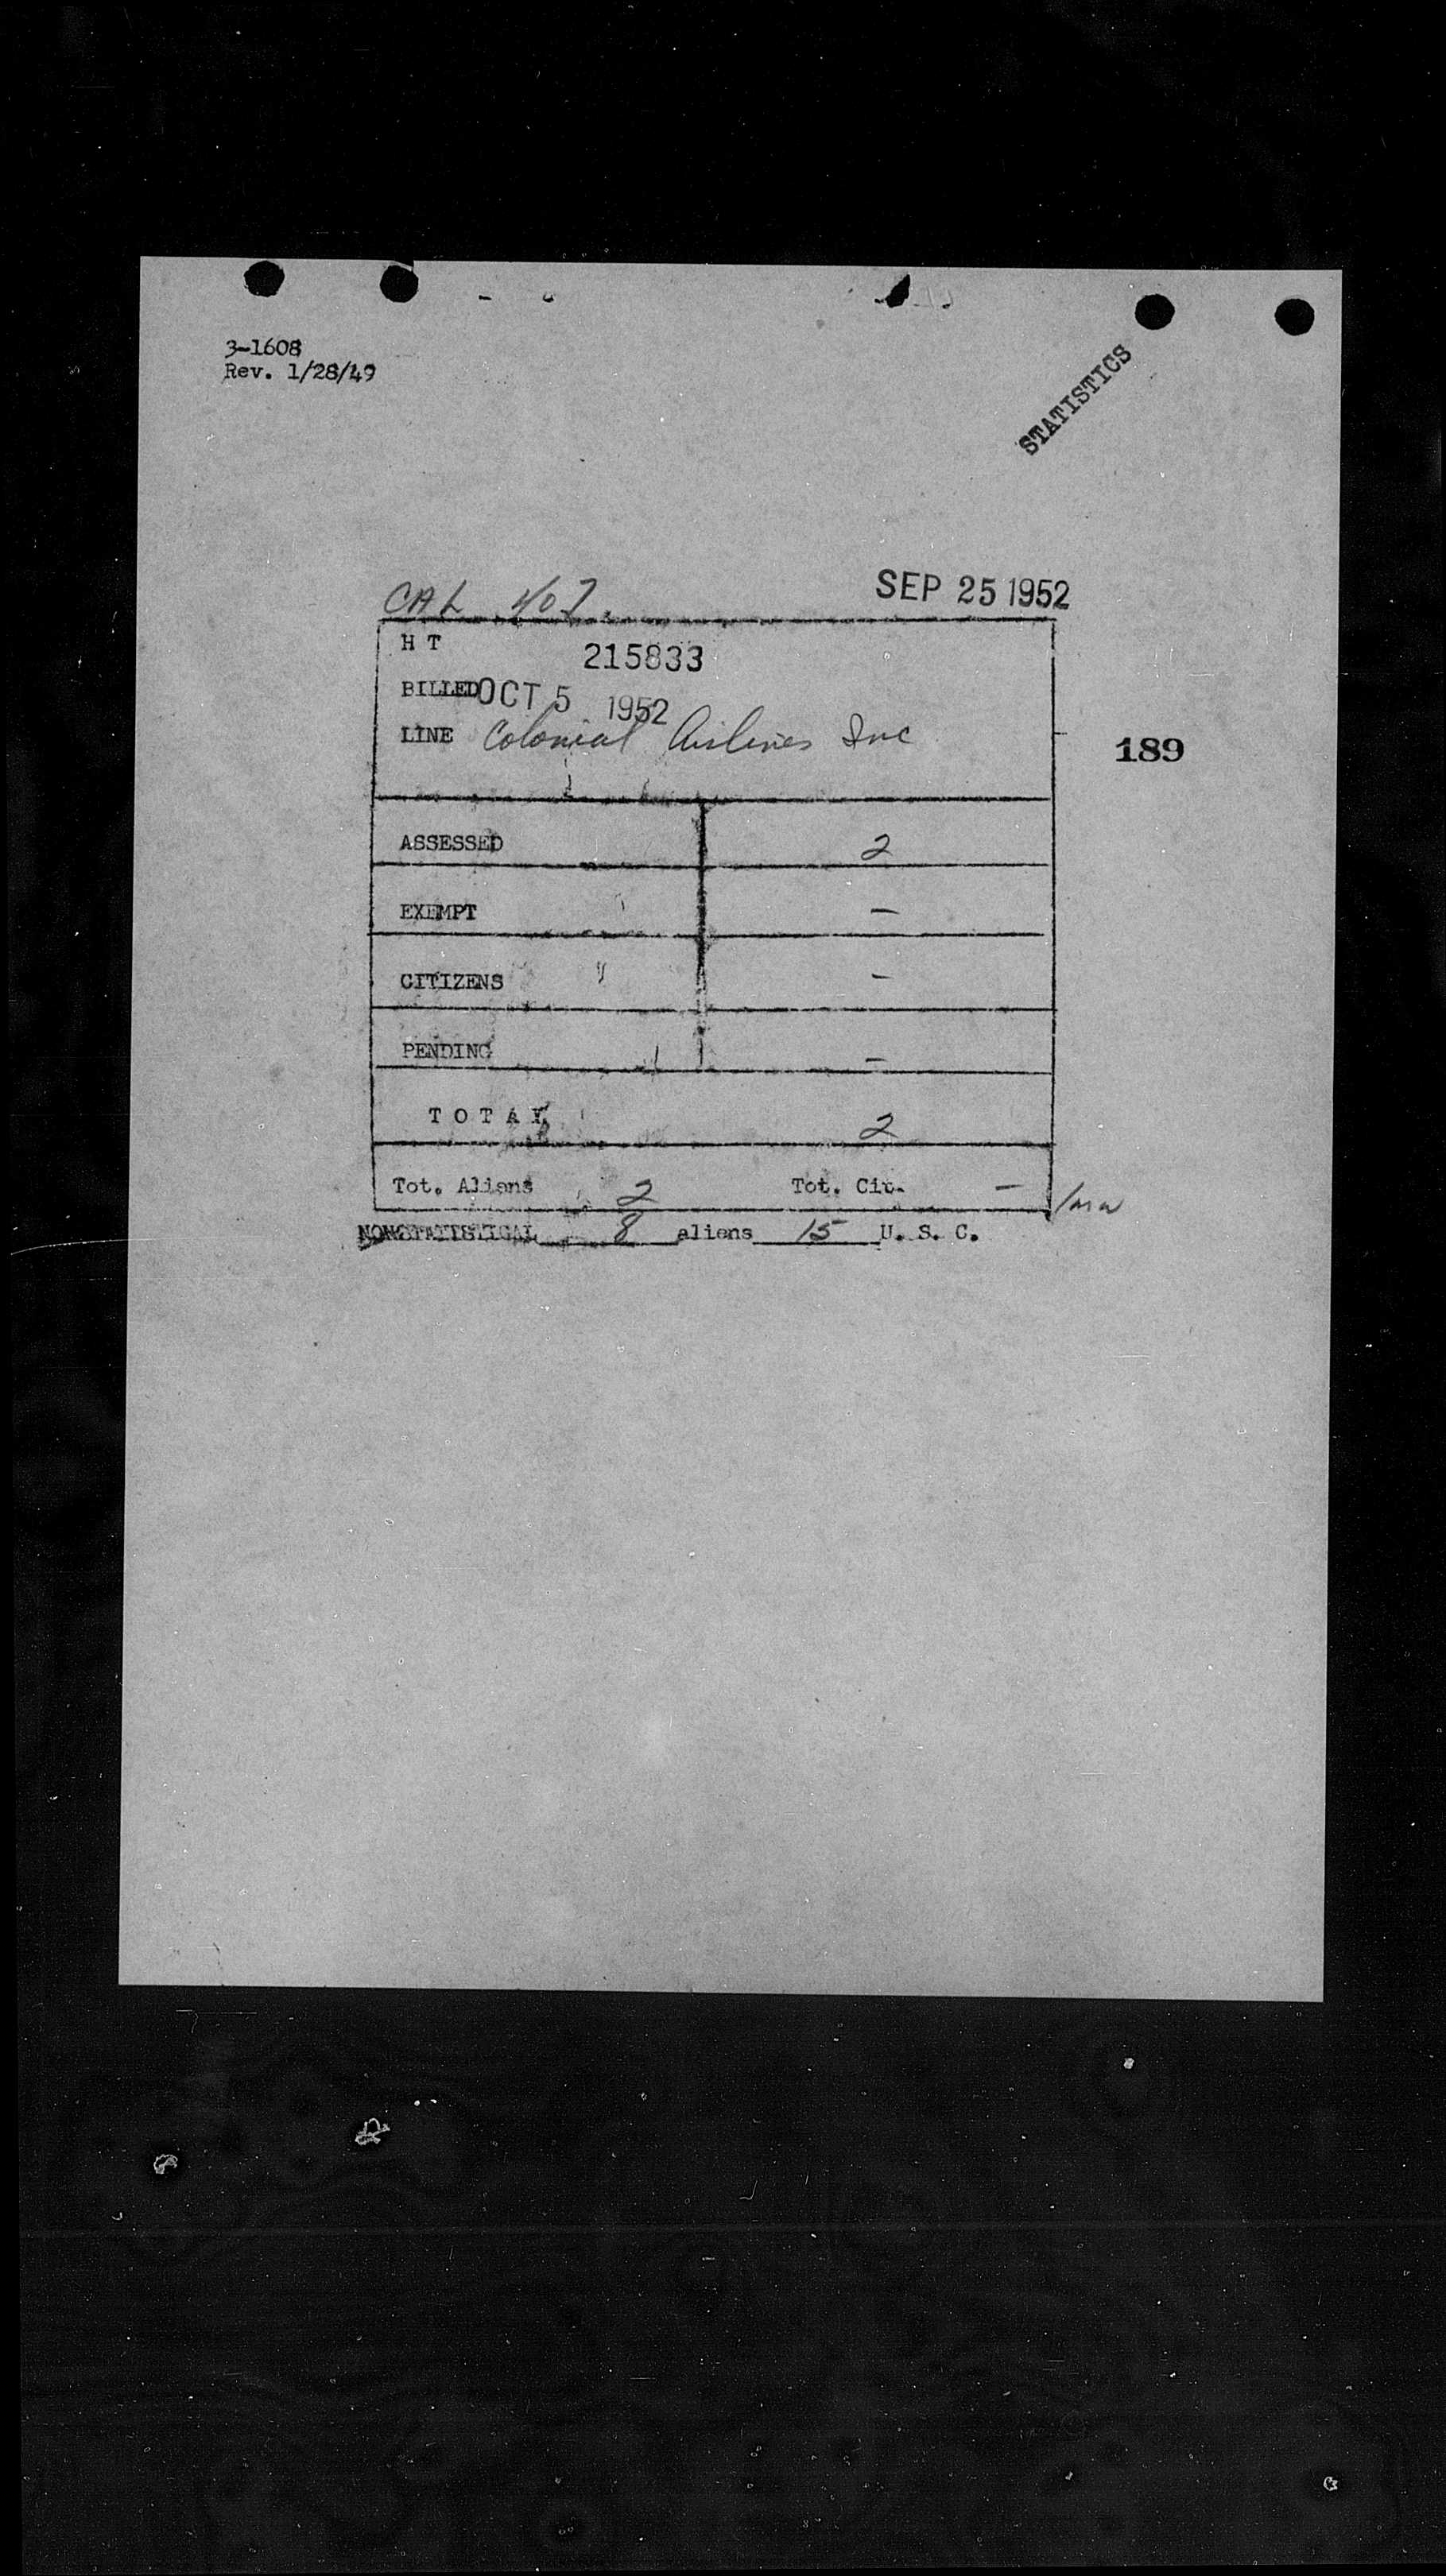 3-1608
Rev. 1/28/49
STATISTICS
CAL 407
SEP 25 1952
H T 215833
BILLED OCT 5 1952
LINE Colonial Airlines Inc
189
ASSESSED 2
EXEMPT —
CITIZENS —
PENDING —
T O T A L 2
Tot. Aliens 2 Tot. Cit. —
NONSTATISTICAL 8 aliens 15 U. S. C.